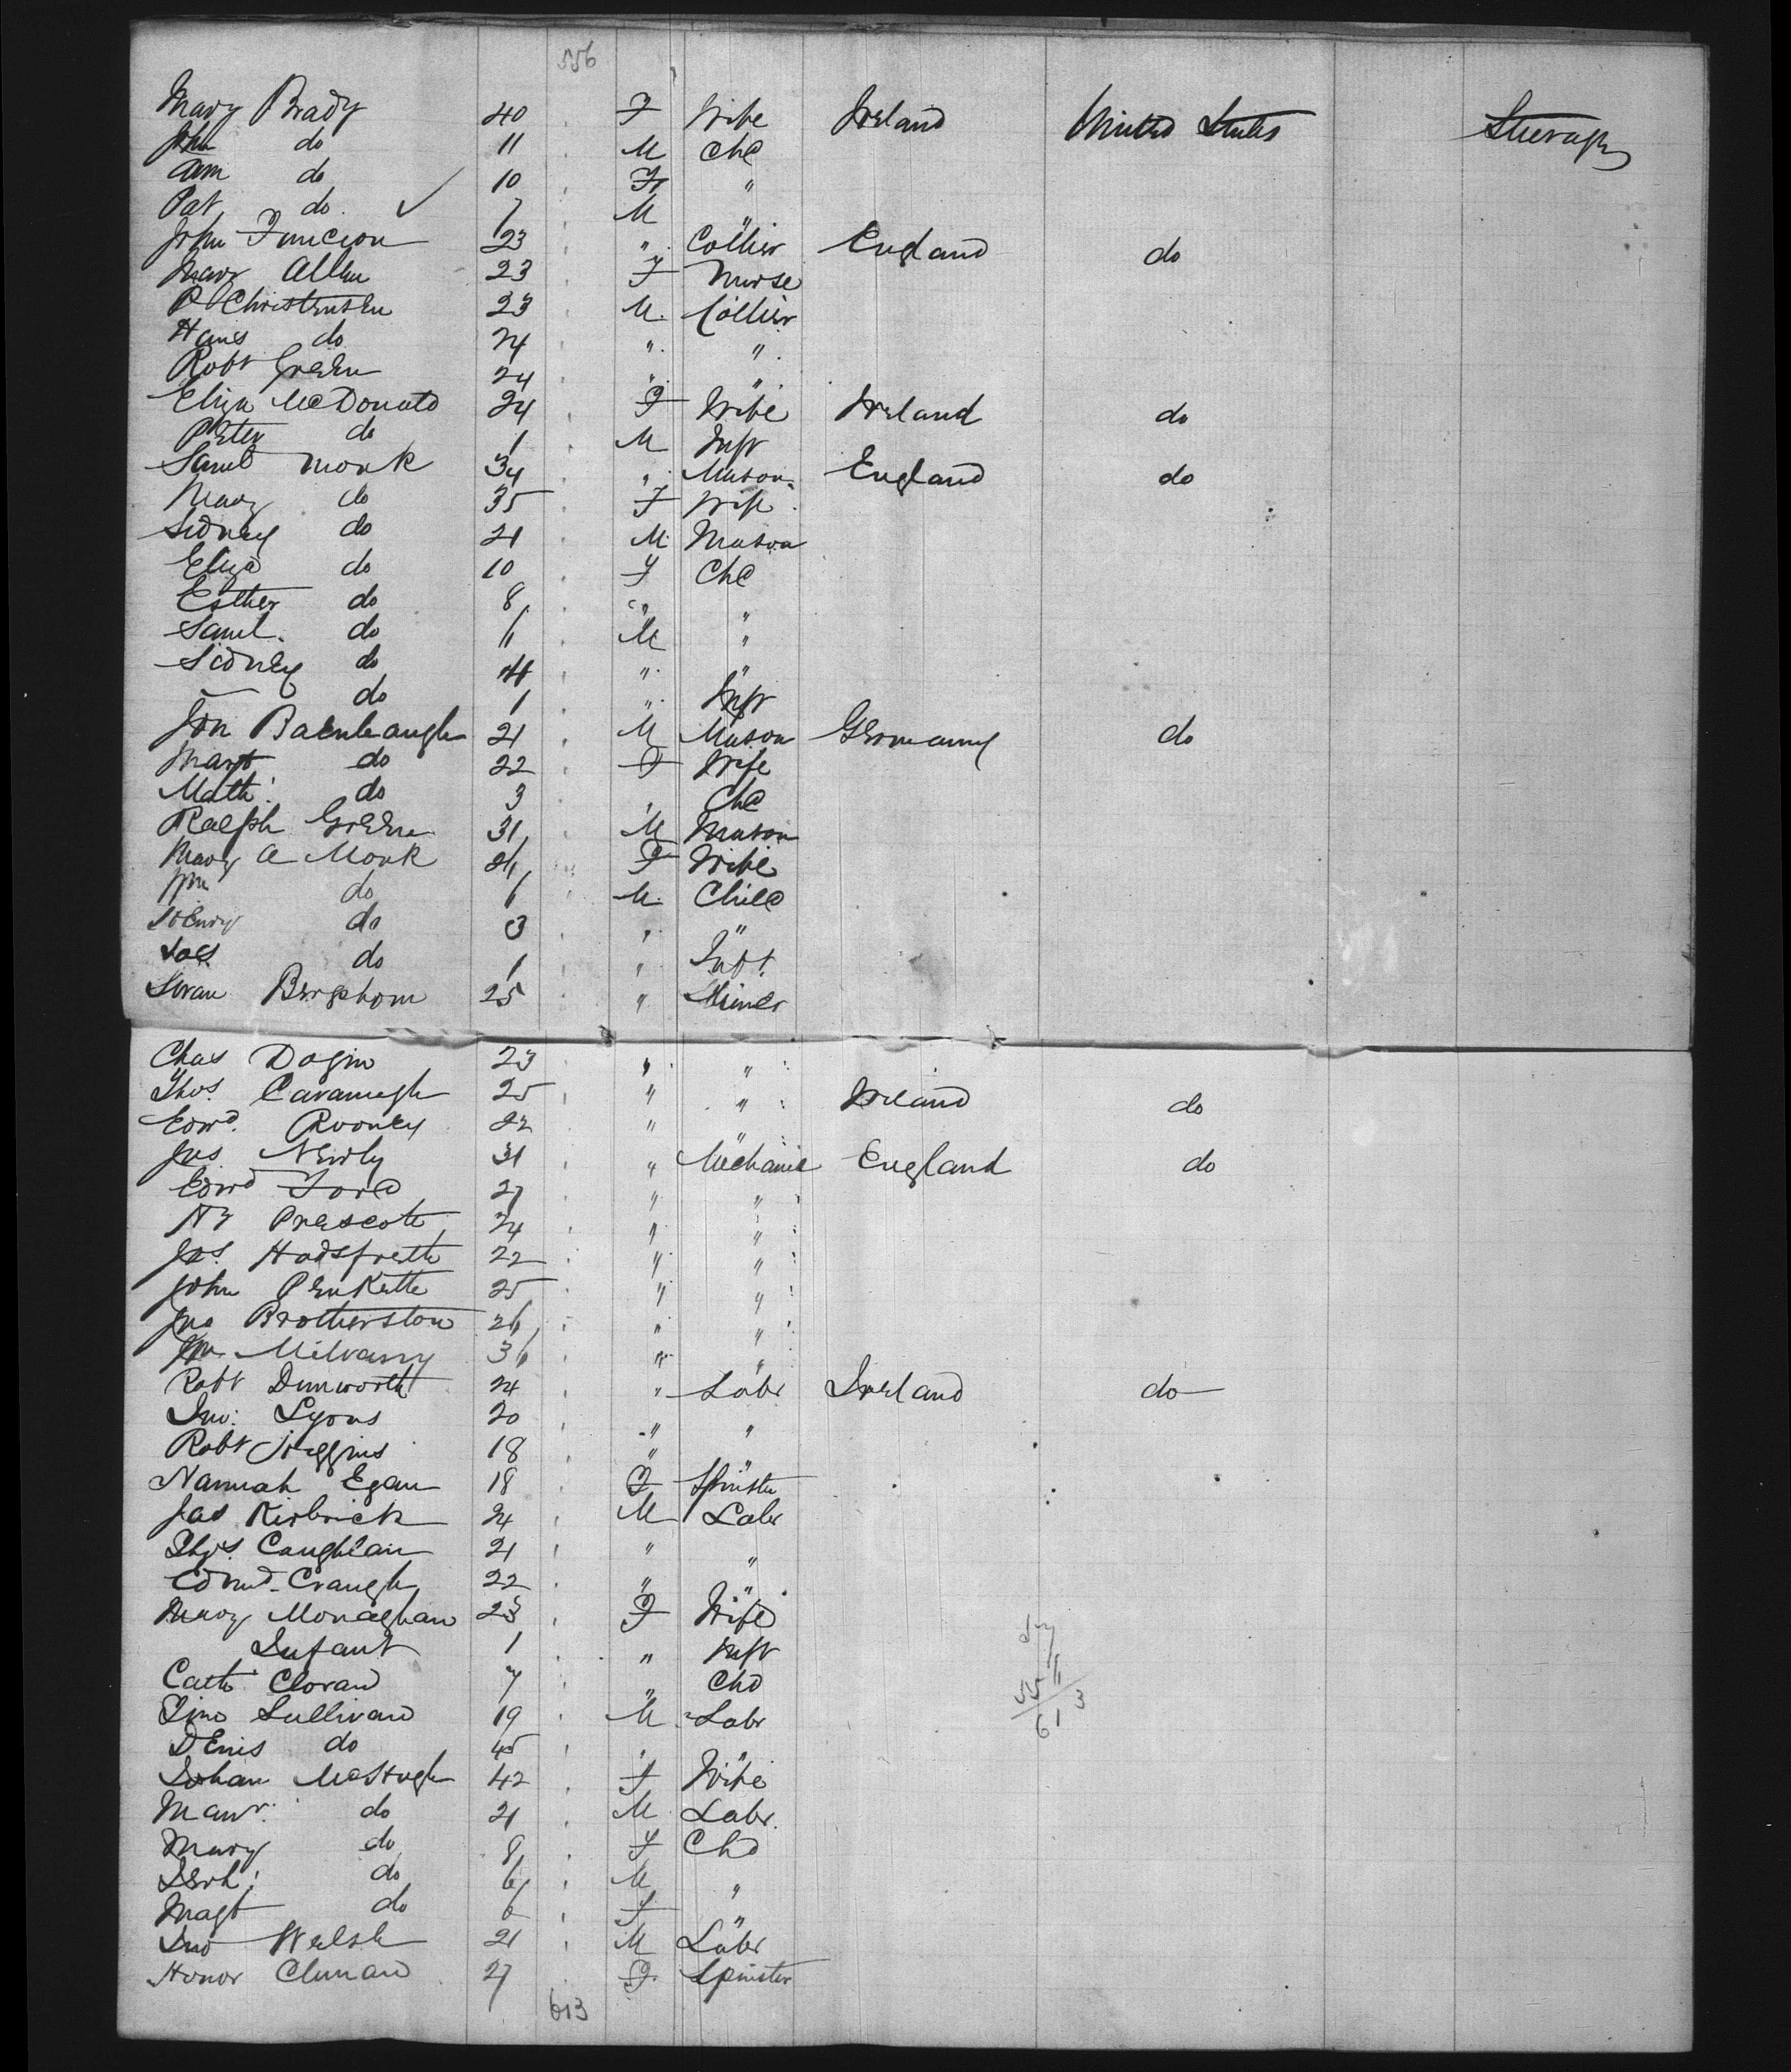 556
Mary Brady 40 F Wife Ireland United States Steerage
John do 11 M Chd
Ann do 10 F "
Pat do 7 M
John 23 " Collier England do
Mary Allen 23 F Nurse
P Christensen 23 M Collier
Hans do 24 " "
Robt Green 24 " "
Eliza McDonald 24 F Wife Ireland do
Peter do 1 M Inft
Saml Monk 34 " Mason England do
Mary do 35 F Wife
Sidney do 21 M Mason
Eliza do 10 F Chd
Esther do 8 " "
Saml. do 6 M "
Sidney do 4 " "
— do 1 " Inft
Jon 21 M Mason Germany do
Margt do 22 F Wife
Math: do 3 " Chd
Ralph Green 31 M Mason
Mary A Monk 26 F Wife
Wm do 6 M Child
Henry do 3 " "
do 1 " Inft.
Swan Berghom 25 " Miner
Chas 23 " "
Thos. Cavanagh 25 " " Ireland do
Edwd. Rooney 22 " "
Jas Newly 31 " Mechanic England do
Edwd Ford 27 " "
Prescott 24 " "
Jas. 22 " "
John Penkette 25 " "
Jno Brotherston 26 " "
Wm 36 " "
Robt Dunworth 24 " Labr Ireland do
Jno: Lyons 20 " "
Robt Higgins 18 "
Hannah Egan 18 F Spinster
Jas Kirbrick 24 M Labr
Thos. Coughlan 21 " "
Edmd. Craugh 22 " "
Mary Monaghan 23 F Wife
Infant 1 " Inft
Cath Cloran 7 " Chd
Timo Sullivan 19 M Labr
Denis do 45 " "
Johan McHugh 42 F Wife
Maur: do 21 M Labr.
Mary do 8 F Chd
do 6 M "
Magt do 6 F "
Jno Welsh 21 M Labr
Honor Clunan 27 F Spinster
613